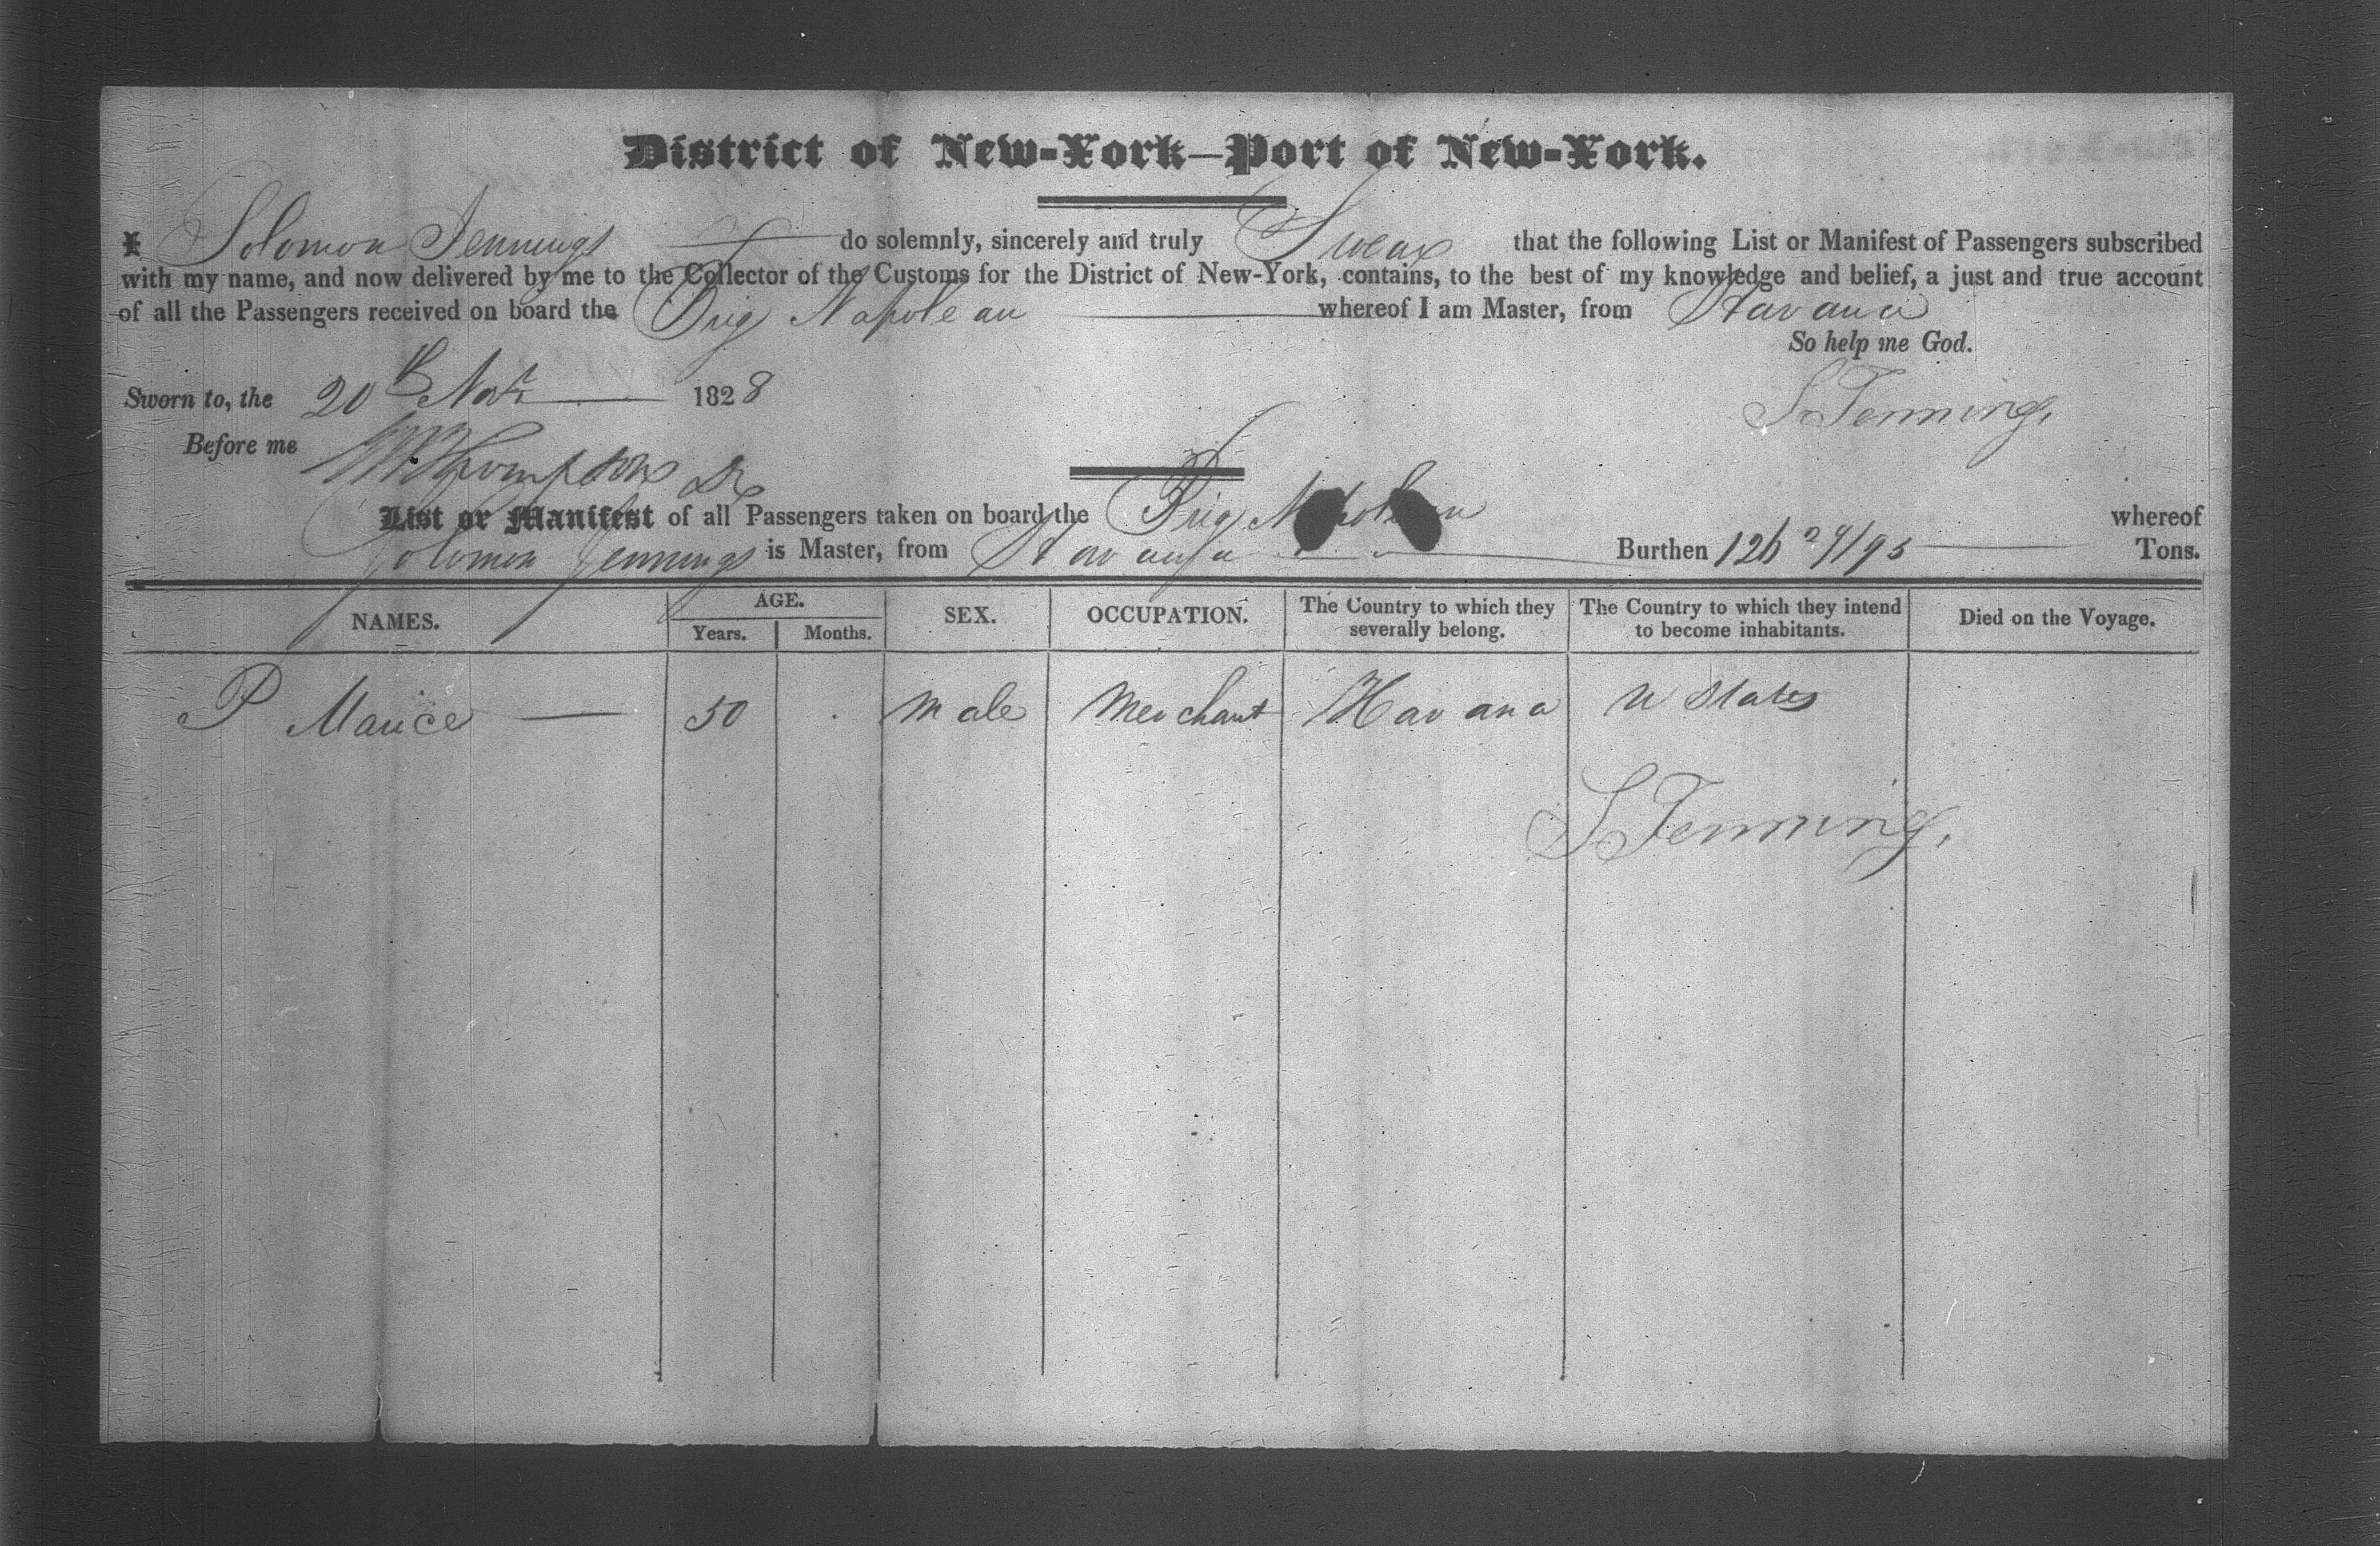 District of New-York—Port of New-York.
I Solomon Jennings do solemnly, sincerely and truly Swear that the following List or Manifest of Passengers subscribed
with my name, and now delivered by me to the Collector of the Customs for the District of New-York, contains, to the best of my knowledge and belief, a just and true account
of all the Passengers received on board the Brig Napolean whereof I am Master, from Havana
So help me God.
Sworn to, the 20th Novr 1828
S Jennings
Before me W Thompson
List or Manifest of all Passengers taken on board the Brig Napolean whereof
Solomon Jennings is Master, from Havana Burthen 126 Tons.
NAMES. AGE. Years. Months. SEX. OCCUPATION. The Country to which they severally belong. The Country to which they intend to become inhabitants. Died on the Voyage.
P Mauice 50 Male Merchant Havana U States
S Jennings